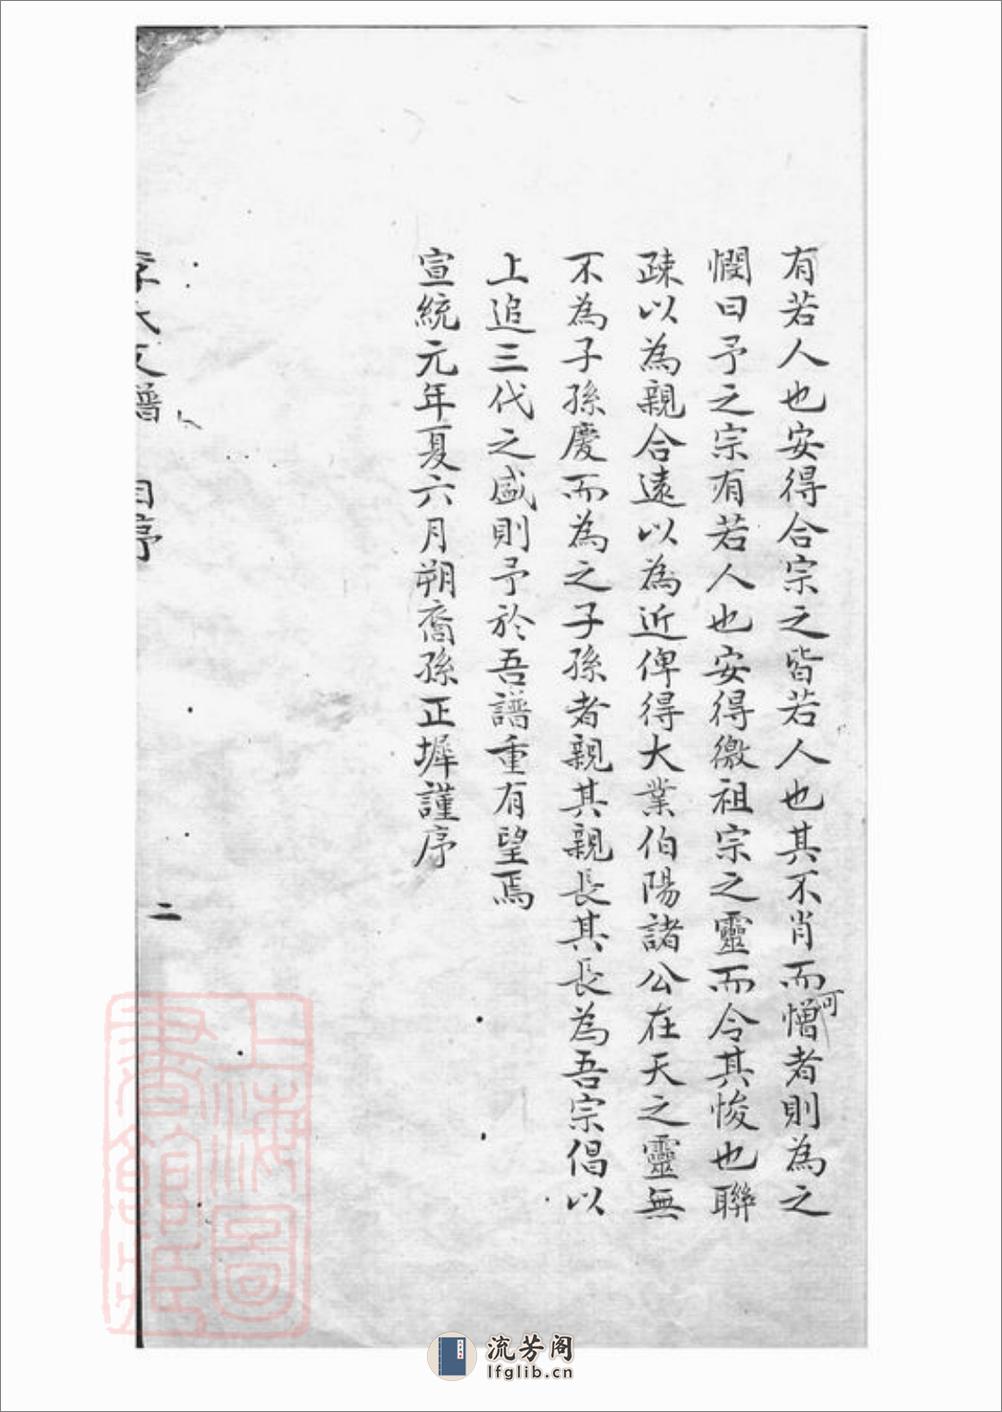 有若人也安得合宗之皆若人也其不肖而可憎者則為之
憫曰予之宗有若人也安得徼祖宗之靈而令其悛也聯
疎以為親合遠以為近俾得大業伯陽諸公在天之靈無
不為子孫慶而為之子孫者親其親長其長為吾宗倡以
上追三代之盛則予於吾譜重有望焉
宣統元年夏六月朔裔孫正墀謹序
李氏支譜 自序
二
上海圖書館藏
流芳阁
lfglib.cn